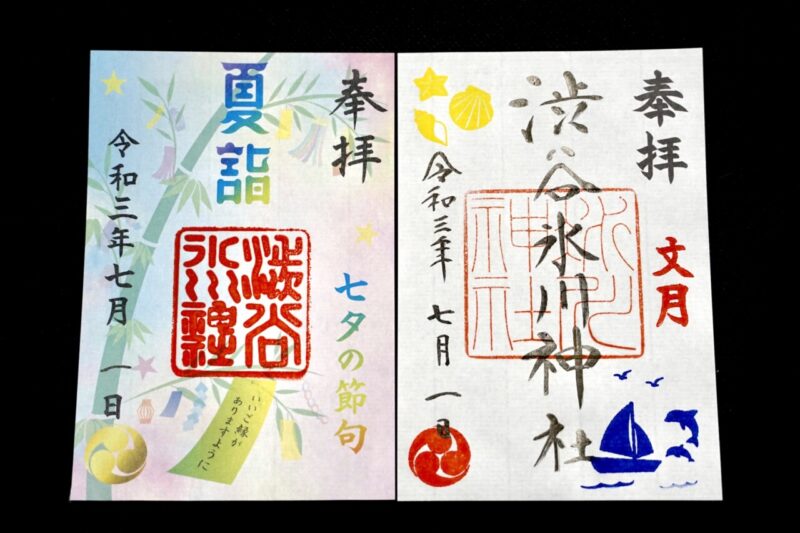 奉拝
夏詣
澁谷
氷川神社
七夕の節句
いいご縁が
ありますように
令和三年七月 一日
奉拝
文月
渋谷氷川神社
氷川
神社
令和三年 七月 一日